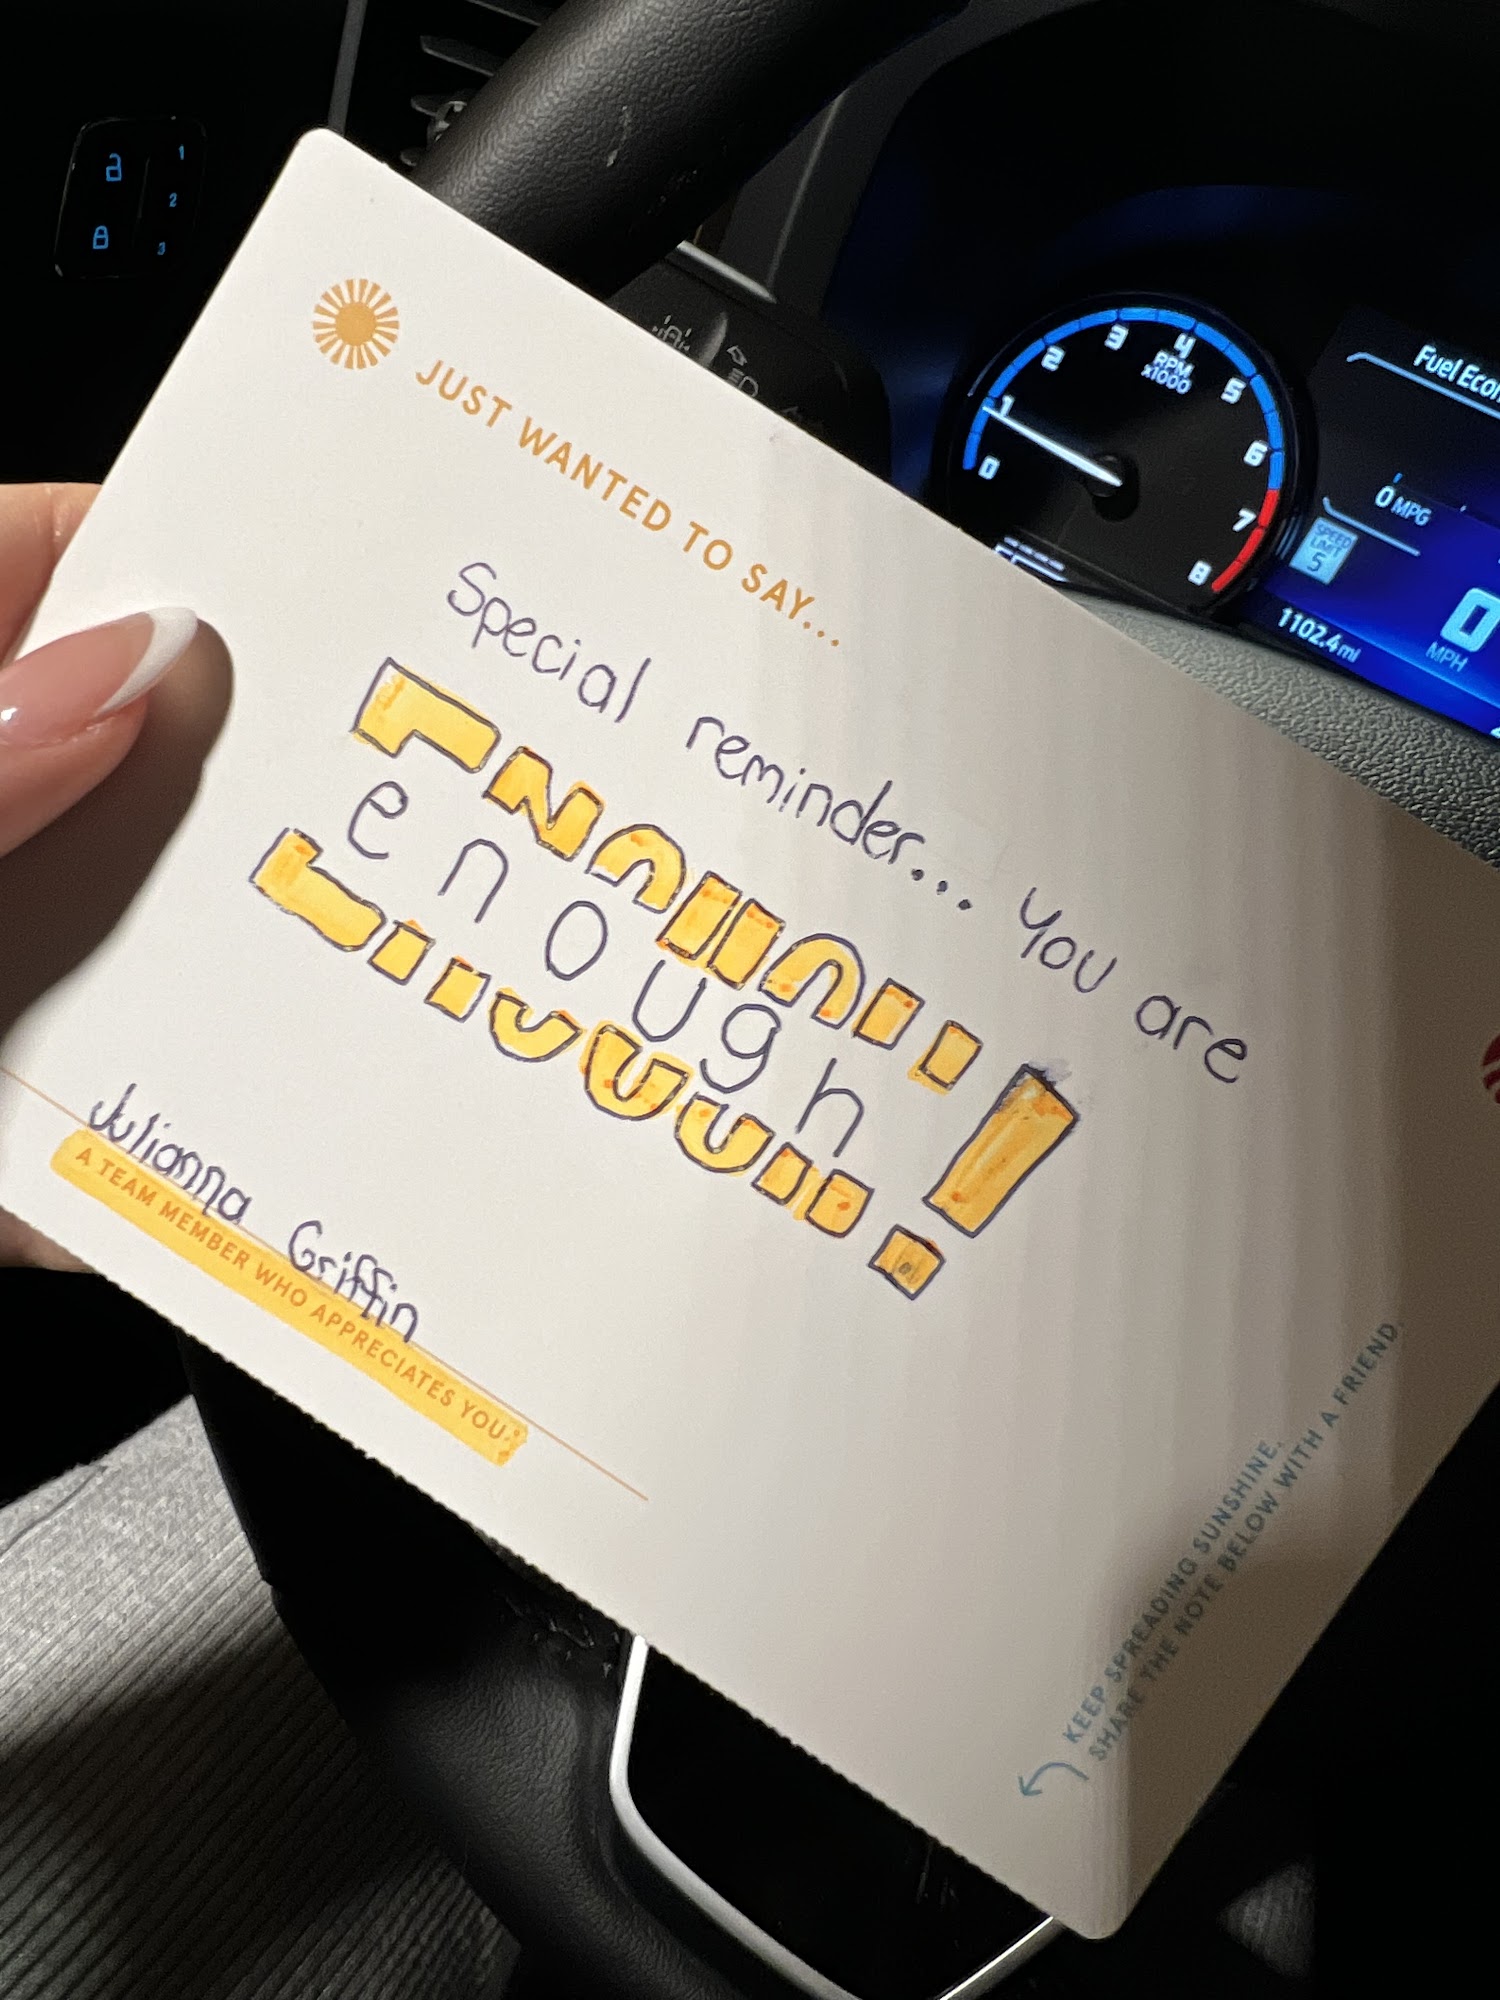 JUST WANTED TO SAY...
Special reminder... you are
enough!
Julianna Griffin
A TEAM MEMBER WHO APPRECIATES YOU.
KEEP SPREADING SUNSHINE.
SHARE THE NOTE BELOW WITH A FRIEND.
1
2
3
0
1
2
3
4
5
6
7
8
RPM
x1000
0 MPG
SPEED
LIMIT
5
1102.4 mi
0
MPH